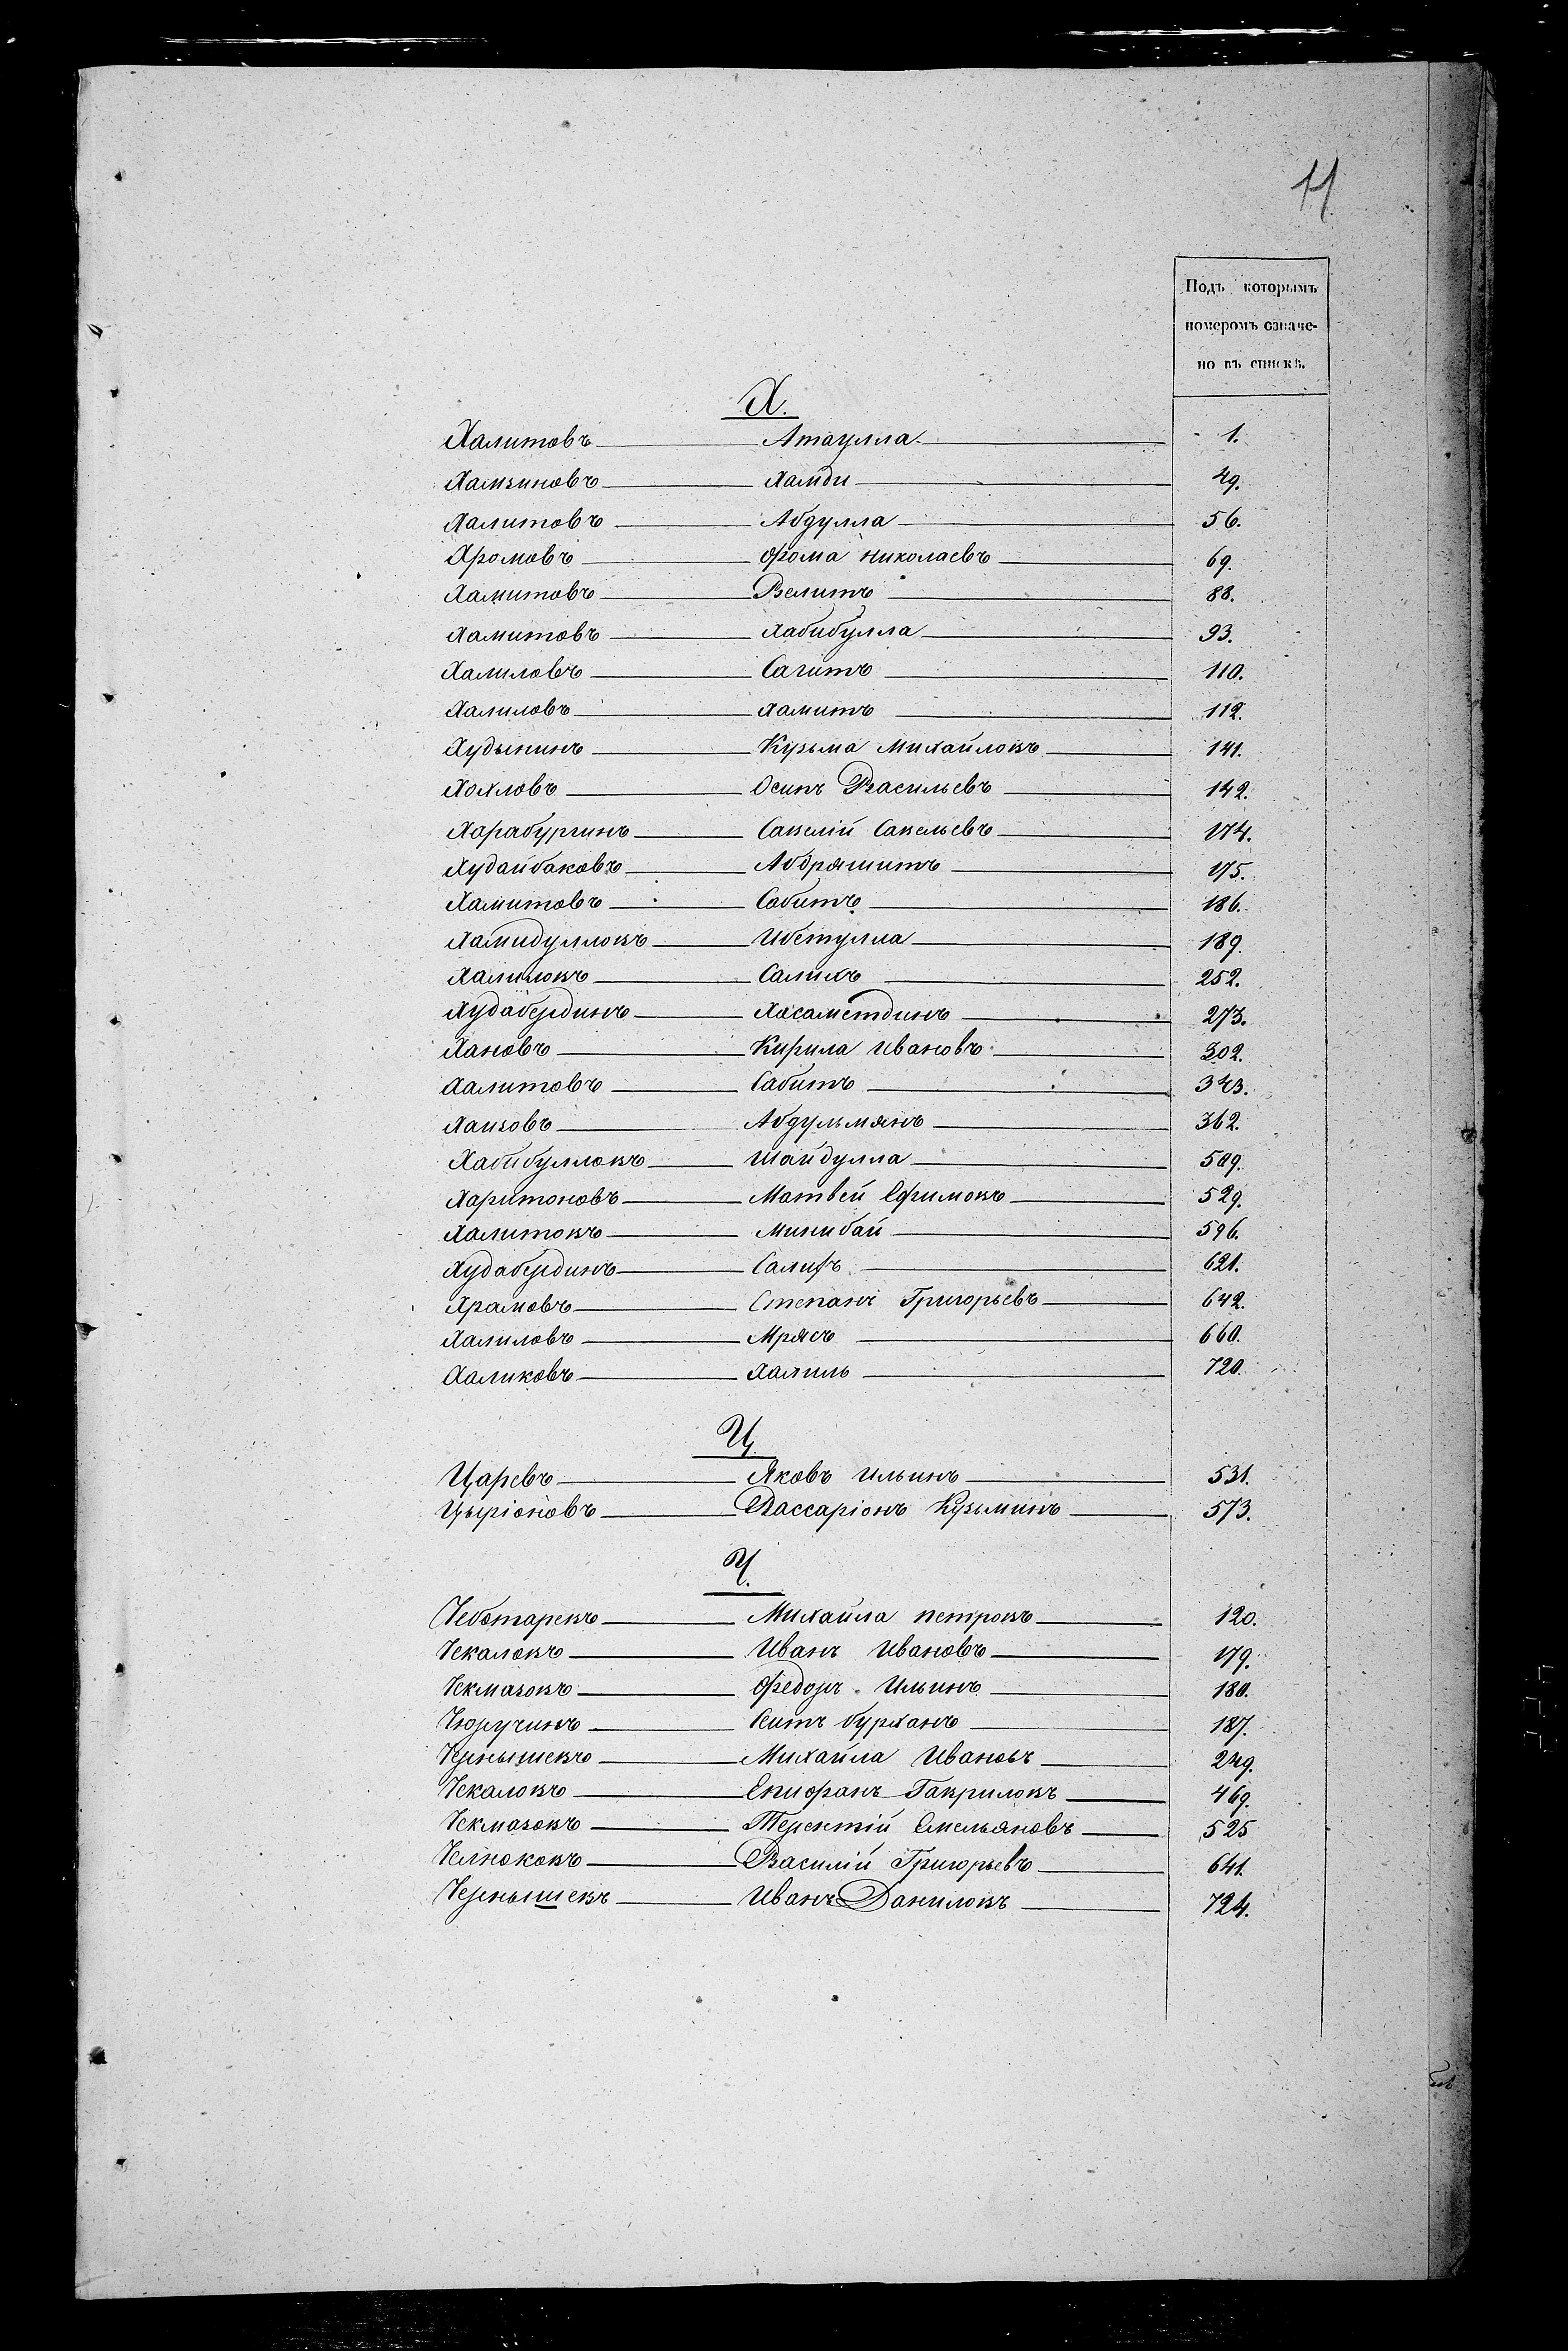 11
Подъ которымъ
номеромъ означе-
но въ спискѣ.
Х.
Халитовъ Атаулла 1.
Хамзиновъ Хамди 49.
Халитовъ Абдулла 56.
Хромовъ Фома Николаевъ 69.
Хамитовъ Велитъ 88.
Хамитовъ Хабибулла 93.
Халиловъ Сагитъ 110.
Халиловъ Хамитъ 112.
Худынинъ Кузьма Михайловъ 141.
Хохловъ Осипъ Васильевъ 142.
Харабургинъ Савелій Савельевъ 174.
Худайбаковъ Абдряшитъ 175.
Хамитовъ Сабитъ 186.
Хамидулловъ Ибетулла 189.
Халиловъ Салихъ 252.
Худабердинъ Хасаметдинъ 273.
Хановъ Кирила Ивановъ 302.
Халитовъ Сабитъ 343.
Хаизовъ Абдульмянъ 362.
Хабибулловъ Шайдулла 509.
Харитоновъ Матвей Ефимовъ 529.
Халитовъ Минибай 596.
Худабердинъ Салифъ 621.
Храмовъ Степанъ Григорьевъ 642.
Халиловъ Мрясъ 660.
Халиковъ Халиль 720.
Ц.
Царевъ Яковъ Ильинъ 531.
Цыріоновъ Вассаріонъ Кузьминъ 573.
Ч.
Чеботаревъ Михайла Петровъ 120.
Чекаловъ Иванъ Ивановъ 179.
Чекмазовъ Федоръ Ильинъ 180.
Чюручинъ Сеитъ Бурханъ 187.
Чернышевъ Михайла Ивановъ 249.
Чекаловъ Епифанъ Гавриловъ 469.
Чекмазовъ Терентій Емельяновъ 525
Челноковъ Василій Григорьевъ 641.
Чернышевъ Иванъ Даниловъ 724.